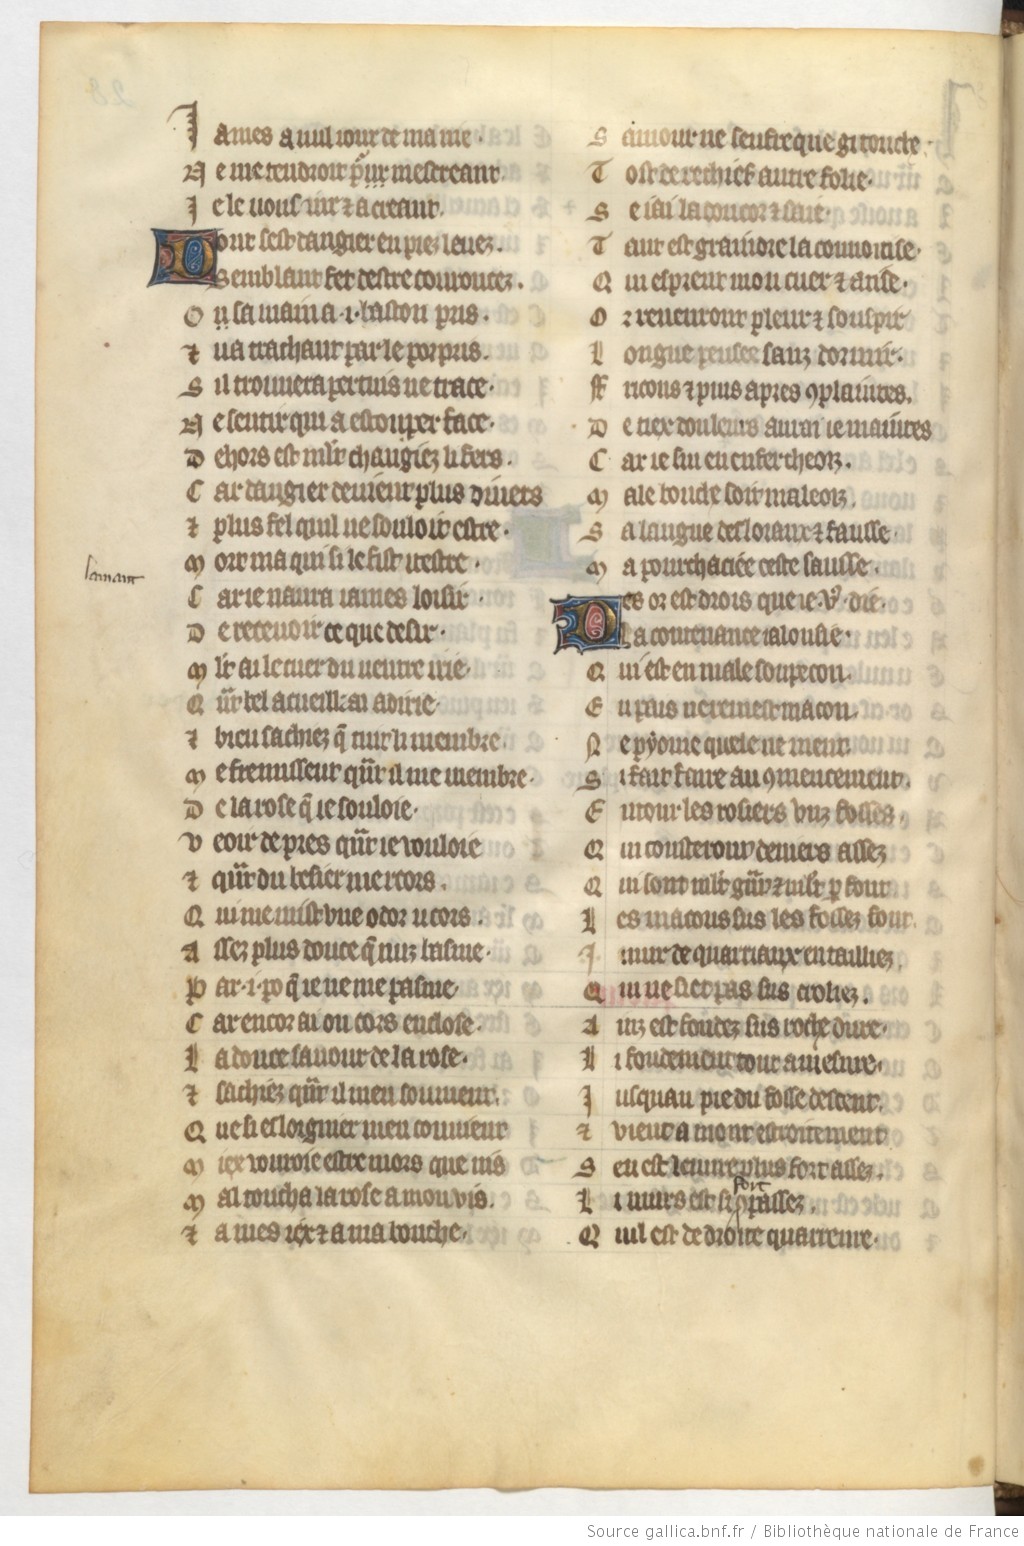 J ames a nul iour de ma me·
N e me tendroit pur mescreant·
J e le uous iur z acreant·
Dont sest dangier en piez leuez·
Semblant fet destre courroucez·
O n sa main a ·i· baston pris·
z ua trachant par le porpris·
S il trouuera pertuis ne trace·
N e sentir qui a estouper face·
D ehors est mlt changiez li fers·
C ar dangier deuient plus diuers
z plus fel quil ne souloit estre·
M ort ma qui si le fist irestre·
C ar ie naura iames loisir·
D e receuoir ce que desir·
M lt ai le cuer du uentre irie·
Q ñt bel acueill ai adirie·
z bien sachiez q̃ tuit li membre·
M e fremissent qñt il me membre·
D e la rose q̃ ie souloie·
V eoir de pres qñt ie vouloie
z qñt du besier me recors·
Q ui me mist vne odor u cors·
A ssez plus douce q̃ nuz basme·
P ar ·i· po q̃ ie ne me pasme·
C ar encor ai ou cors enclose·
L a douce sauour de la rose·
z sachiez qñt il men souuient·
Q ue si eslorgnier men couuient
M iex vouroie estre mors que uis
M al toucha la rose a mon vis·
z a mes iex z a ma bouche·
lamant
S amour ne seufre que gi touche·
T ost de rechief autre folie·
S e iai la coucor
T ant est graindre la conuoitise·
Q ui esprent mon cuer z atise·
O r reuenront pleur z souspir
L ongue pensee sanz dormir·
F ricons z puis apres 9plaintes·
D e tiex douleurs aurai ie maintes
C ar ie sui en enfer cheoiz·
M ale bouche soit maleoiz·
S a langue desloiaux z fausse·
M a pourchaciée ceste sausse·
Des or est drois que ie v9 die·
La contenance ialousie·
Q ui est en male soupecon·
E u pais ne remest macon·
N e pyonie quele ne ment
S i fait faire au 9mencement·
E ntour les rosiers vnz fossés·
Q ui cousteront deniers assez
Q ui sont mlt grãt z mlt p̱font·
L es macons sus les fossez font·
J mur de quarriaux entailliez·
Q ui ne siet pas sus croliez·
A inz est fondez sus roche dure·
L i fondement tout a mesure·
J usquau pie du fosse descent·
z vient a mont estroitement
S en est leuure plus fort assez·
L i murs est si fort passez·
Q uil est de droite quarreure·
Source gallica.bnf.fr / Bibliothèque nationale de France